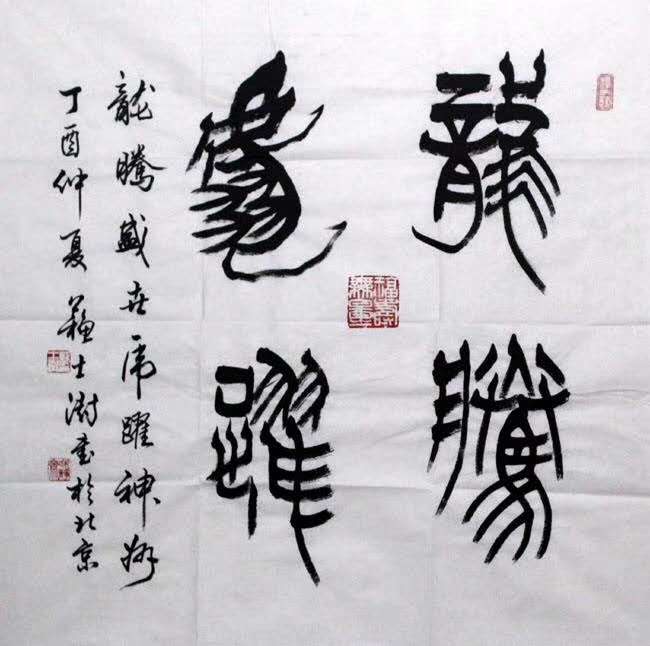 龍騰
虎躍
龍騰盛世虎躍神州
丁酉仲夏蘇士澍書於北京
福壽無量